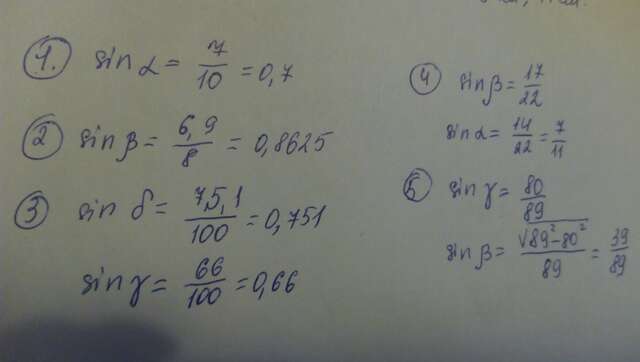 1. sin α = 7/10 = 0,7
2 sin β = 6,9/8 = 0,8625
3 sin δ = 75,1/100 = 0,751
sin γ = 66/100 = 0,66
4 sin β = 17/22
sin α = 14/22 = 7/11
5 sin γ = 80/89
sin β = √89²-80²/89 = 39/89